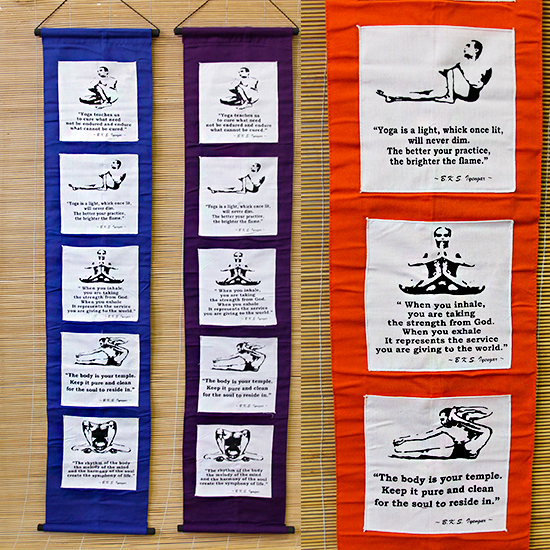 "Yoga teaches us
to cure what need
not be endured and endure
what cannot be cured."
~ B.K.S. Iyengar ~
"Yoga is a light, whick once lit,
will never dim.
The better your practice,
the brighter the flame."
~ B.K.S. Iyengar ~
" When you inhale,
you are taking
the strength from God.
When you exhale
It represents the service
you are giving to the world."
~ B.K.S. Iyengar ~
"The body is your temple.
Keep it pure and clean
for the soul to reside in."
~ B.K.S. Iyengar ~
"The rhythm of the body
the melody of the mind
and the harmony of the soul
create the symphony of life."
~ B.K.S. Iyengar ~
"Yoga teaches us
to cure what need
not be endured and endure
what cannot be cured."
~ B.K.S. Iyengar ~
"Yoga is a light, whick once lit,
will never dim.
The better your practice,
the brighter the flame."
~ B.K.S. Iyengar ~
" When you inhale,
you are taking
the strength from God.
When you exhale
It represents the service
you are giving to the world."
~ B.K.S. Iyengar ~
"The body is your temple.
Keep it pure and clean
for the soul to reside in."
~ B.K.S. Iyengar ~
"The rhythm of the body
the melody of the mind
and the harmony of the soul
create the symphony of life."
~ B.K.S. Iyengar ~
"Yoga is a light, whick once lit,
will never dim.
The better your practice,
the brighter the flame."
~ B.K.S. Iyengar ~
" When you inhale,
you are taking
the strength from God.
When you exhale
It represents the service
you are giving to the world."
~ B.K.S. Iyengar ~
"The body is your temple.
Keep it pure and clean
for the soul to reside in."
~ B.K.S. Iyengar ~